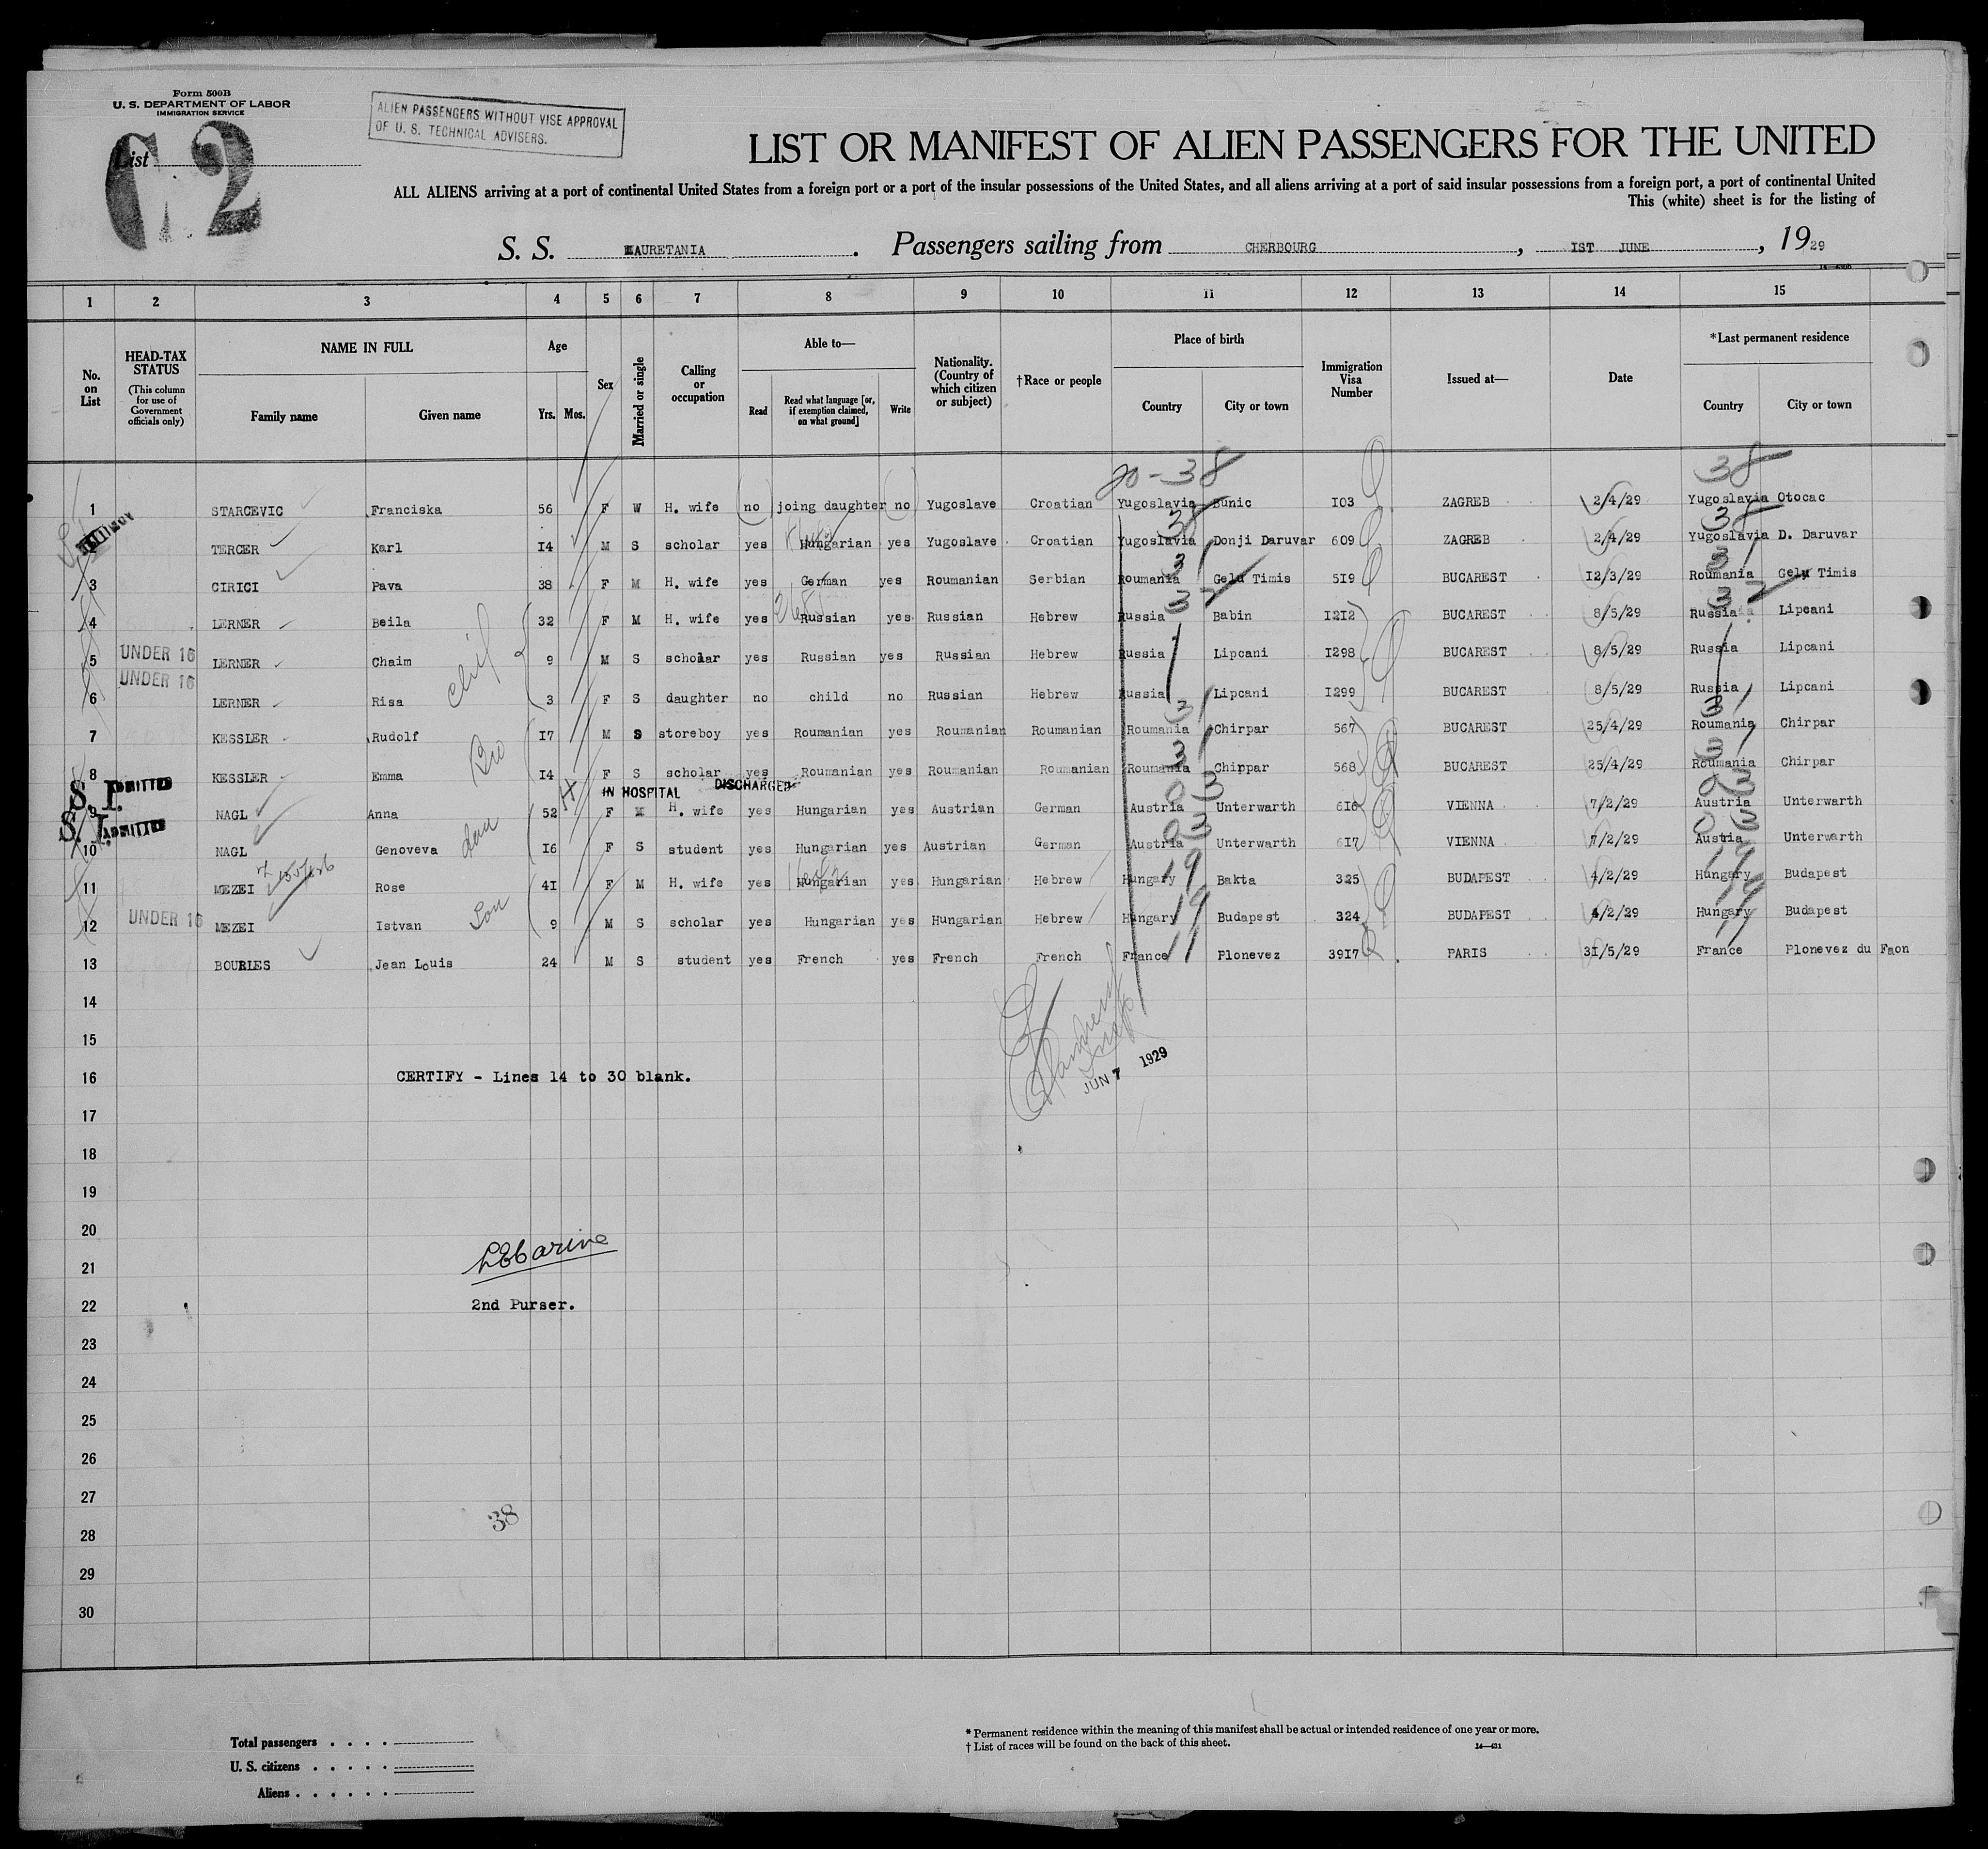 Form 500B
U. S. DEPARTMENT OF LABOR
IMMIGRATION SERVICE
List
62
ALIEN PASSENGERS WITHOUT VISE APPROVAL
OF U. S. TECHNICAL ADVISERS.
LIST OR MANIFEST OF ALIEN PASSENGERS FOR THE UNITED
ALL ALIENS arriving at a port of continental United States from a foreign port or a port of the insular possessions of the United States, and all aliens arriving at a port of said insular possessions from a foreign port, a port of continental United
This (white) sheet is for the listing of
S. S. MAURETANIA . Passengers sailing from CHERBOURG , IST JUNE , 1929
1 2 3 4 5 6 7 8 9 10 11 12 13 14 15
No. on List
HEAD-TAX STATUS
(This column for use of Government officials only)
NAME IN FULL
Family name Given name
Age
Yrs. Mos.
Sex
Married or single
Calling or occupation
Able to—
Read
Read what language [or, if exemption claimed, on what ground]
Write
Nationality. (Country of which citizen or subject)
†Race or people
Place of birth
Country City or town
Immigration Visa Number
Issued at—
Date
*Last permanent residence
Country City or town
20-38 38
1 STARCEVIC Franciska 56 F W H. wife no joing daughter no Yugoslave Croatian Yugoslavia Bunic I03 ZAGREB 2/4/29 Yugoslavia Otocac
38 38
TERCER Karl I4 M S scholar yes Hungarian yes Yugoslave Croatian Yugoslavia Donji Daruvar 609 ZAGREB 2/4/29 Yugoslavia D. Daruvar
31 31
3 CIRICI Pava 38 F M H. wife yes German yes Roumanian Serbian Roumania Gelu Timis 5I9 BUCAREST I2/3/29 Roumania Gelu Timis
32 32
4 LERNER Beila 32 F M H. wife yes Russian yes Russian Hebrew Russia Babin I2I2 BUCAREST 8/5/29 Russia Lipcani
UNDER 16
5 LERNER Chaim 9 M S scholar yes Russian yes Russian Hebrew Russia Lipcani I298 BUCAREST 8/5/29 Russia Lipcani
UNDER 16
6 LERNER Risa 3 F S daughter no child no Russian Hebrew Russia Lipcani I299 BUCAREST 8/5/29 Russia Lipcani
31 31
7 KESSLER Rudolf I7 M S storeboy yes Roumanian yes Roumanian Roumanian Roumania Chirpar 567 BUCAREST 25/4/29 Roumania Chirpar
Bro 31 31
8 KESSLER Emma I4 F S scholar yes Roumanian yes Roumanian Roumanian Roumania Chirpar 568 BUCAREST 25/4/29 Roumania Chirpar
S. I. ADMITTED IN HOSPITAL DISCHARGED 03 03
9 NAGL Anna 52 F M H. wife yes Hungarian yes Austrian German Austria Unterwarth 6I6 VIENNA 7/2/29 Austria Unterwarth
S. I. ADMITTED 03 03
10 NAGL Genoveva dau I6 F S student yes Hungarian yes Austrian German Austria Unterwarth 6I7 VIENNA 7/2/29 Austria Unterwarth
19 19
11 MEZEI Rose 4I F M H. wife yes Hungarian yes Hungarian Hebrew Hungary Bakta 325 BUDAPEST 4/2/29 Hungary Budapest
UNDER 16 19 19
12 MEZEI Istvan Son 9 M S scholar yes Hungarian yes Hungarian Hebrew Hungary Budapest 324 BUDAPEST 4/2/29 Hungary Budapest
11 11
13 BOURLES Jean Louis 24 M S student yes French yes French French France Plonevez 39I7 PARIS 3I/5/29 France Plonevez du Faon
14
15
JUN 7 1929
16 CERTIFY - Lines 14 to 30 blank.
17
18
19
20
21
22 2nd Purser.
23
24
25
26
27
38
28
29
30
Total passengers
U. S. citizens
Aliens
* Permanent residence within the meaning of this manifest shall be actual or intended residence of one year or more.
† List of races will be found on the back of this sheet.
14—431